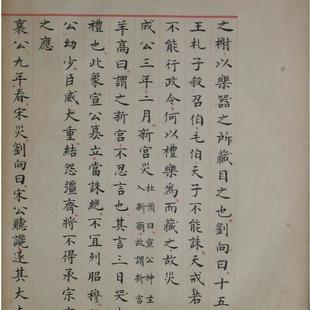 之榭以樂器之所藏目之也劉向曰十五
王札子殺召伯毛伯天子不能誅天戒若
不能行政令何以禮樂為而藏之故災
成公三年二月新宮災杜預曰宣公神主
入新廟故謂新宮
羊高曰謂之新宮不忍言也其言三日哭
禮也此象宣公墓立當誅絕不宜列昭穆
公幼少臣威大重結怨彊齊將不得承宗
之應
襄公九年春宋災劉向曰宋公聽讒逐其大